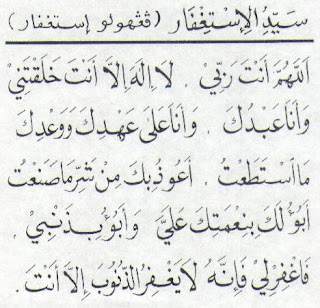 سَيِّدُ الإِسْتِغْفَار (ڤڠهولو إستغفار)
اَللّٰهُمَّ أَنْتَ رَبِّيْ . لَا إِلٰهَ إِلَّا أَنْتَ خَلَقْتَنِيْ
وَأَنَا عَبْدُكَ . وَأَنَا عَلَى عَهْدِكَ وَوَعْدِكَ
مَا اسْتَطَعْتُ . أَعُوْذُ بِكَ مِنْ شَرِّ مَا صَنَعْتُ
أَبُوْءُ لَكَ بِنِعْمَتِكَ عَلَيَّ وَأَبُوْءُ بِذَنْبِيْ .
فَاغْفِرْلِيْ فَإِنَّهُ لَا يَغْفِرُ الذُّنُوْبَ إِلَّا أَنْتَ .